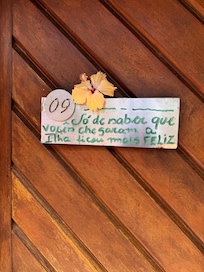 09
Só de saber que
vocês chegaram a
Ilha ficou mais FELIZ